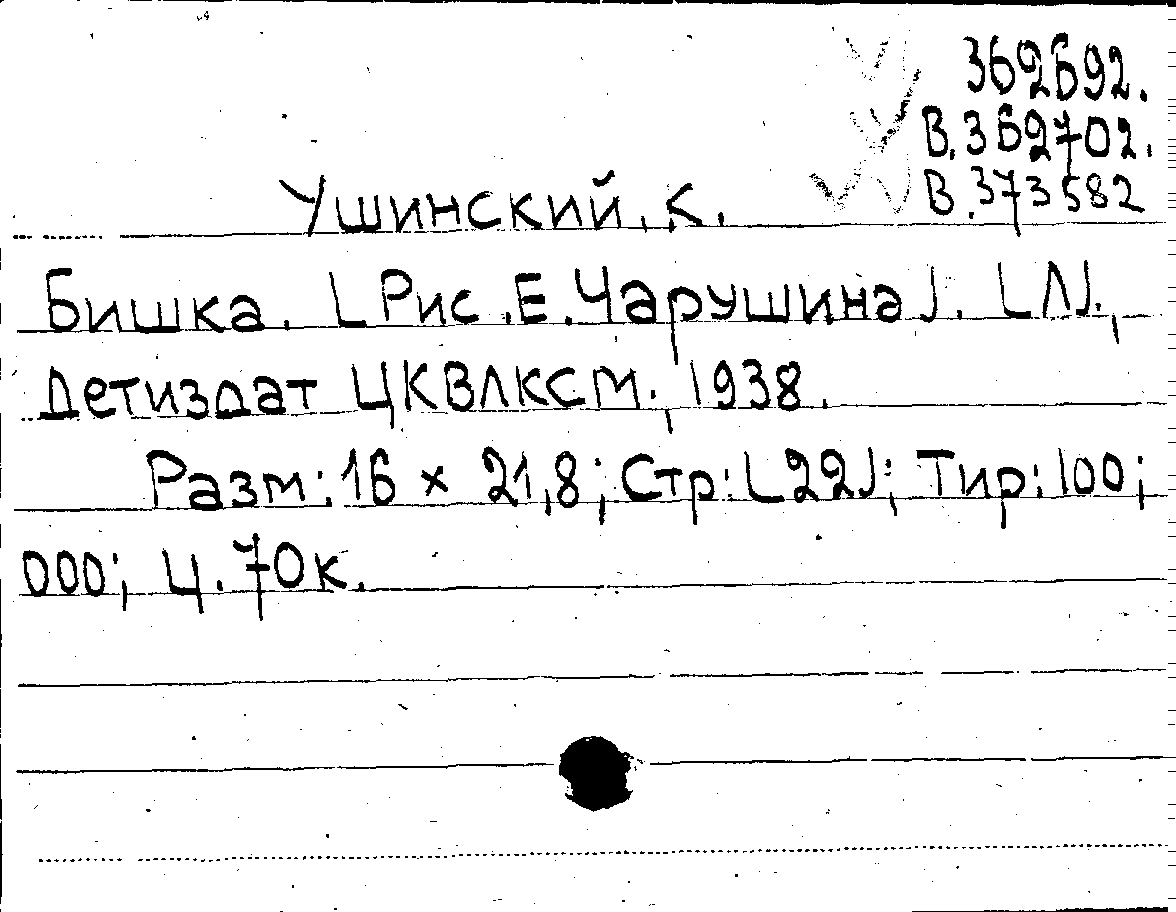 362692.
В.362702.
В.373582
Ушинский, К.
Бишка. [Рис. Е. Чарушина]. [Л],
Детиздат ЦКВЛКСМ, 1938.
Разм: 16 х 21,8; Стр: [22]; Тир: 100;
000; Ц. 70к.